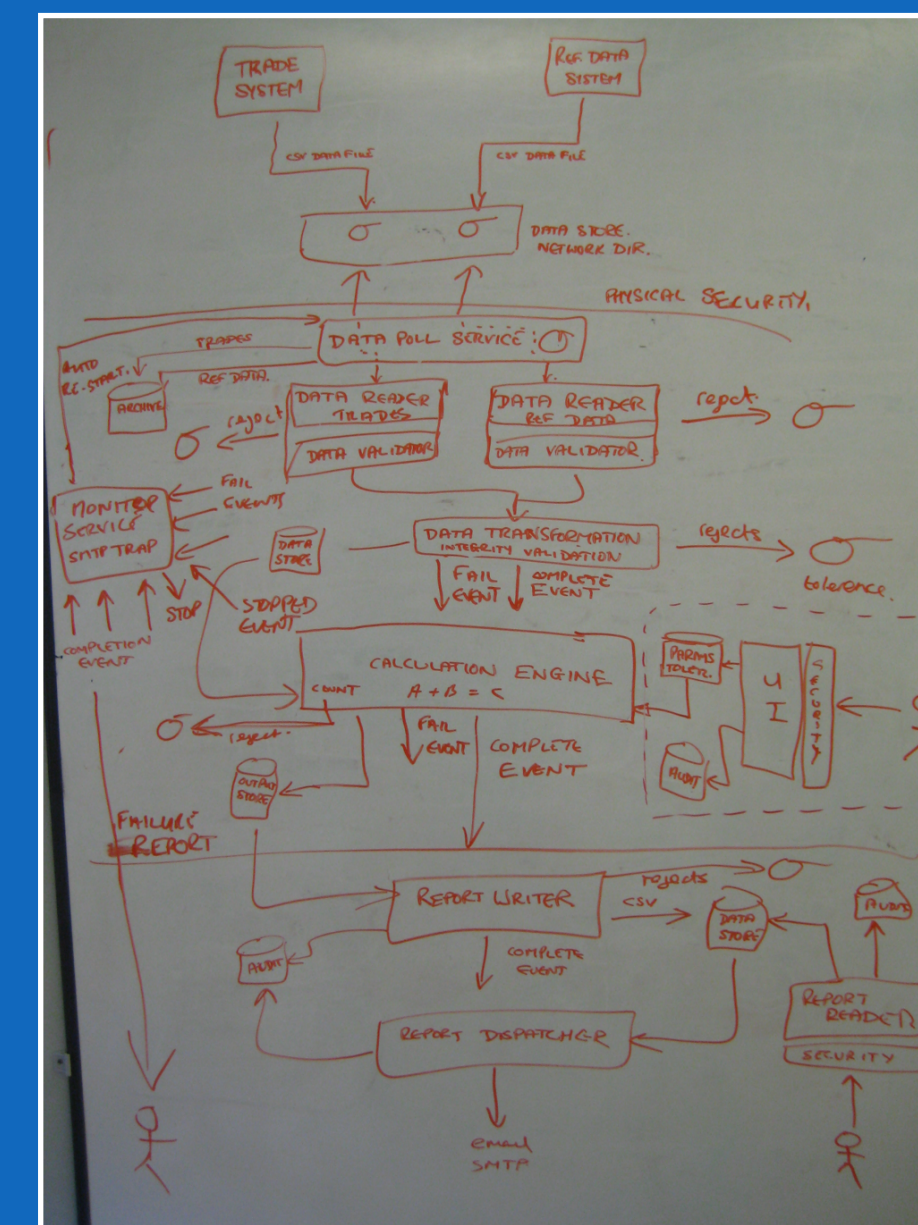 TRADE
SYSTEM
REF DATA
SYSTEM
CSV DATA FILE
CSV DATA FILE
DATA STORE.
NETWORK DIR.
PHYSICAL SECURITY.
DATA POLL SERVICE
TRADES
REF DATA.
AUTO
RE-START.
ARCHIVE
DATA READER
TRADES
DATA VALIDATOR
DATA READER
REF DATA
DATA VALIDATOR.
reject
reject.
FAIL
EVENTS
MONITOR
SERVICE
SMTP TRAP
DATA
STORE
DATA TRANSFORMATION
INTEGRITY VALIDATION
rejects
tolerence.
FAIL
EVENT
COMPLETE
EVENT
STOP
STOPPED
EVENT
COMPLETION
EVENT
CALCULATION ENGINE
A + B = C
COUNT
PARAMS
TOLER.
UI
SECURITY
AUDIT
reject.
FAIL
EVENT
COMPLETE
EVENT
OUTPUT
STORE
FAILURE
REPORT
REPORT WRITER
rejects
CSV
DATA
STORE
AUDIT
AUDIT
COMPLETE
EVENT
REPORT
READER
SECURITY
REPORT DISPATCHER
email
SMTP